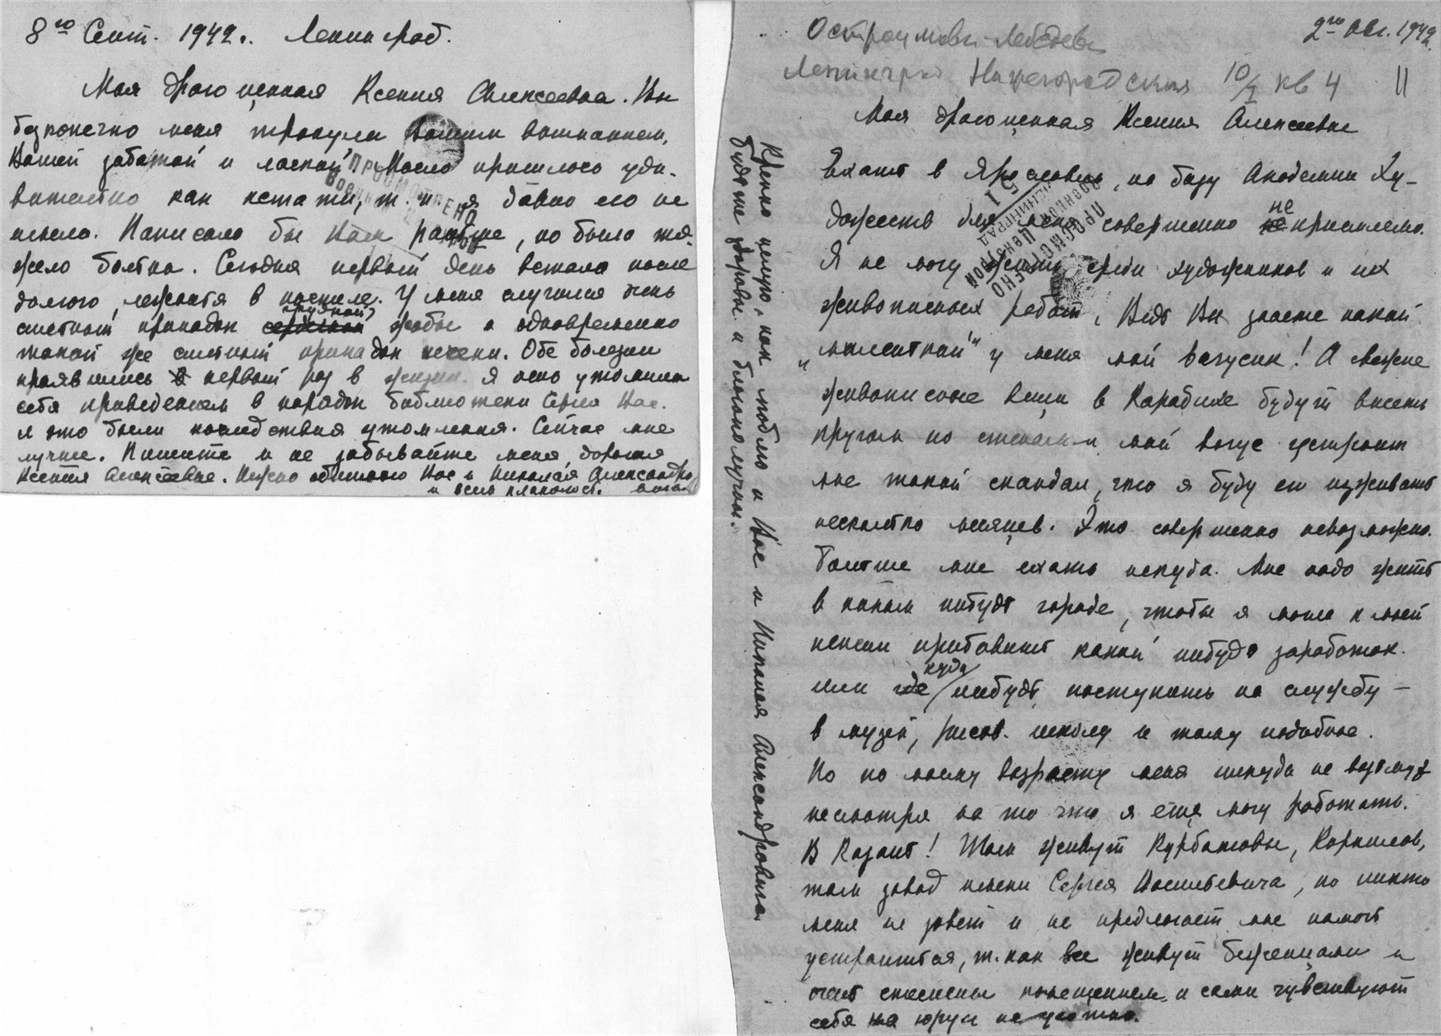 8го Сент. 1942г. Ленинград.
Моя драгоценная Ксения Алексеевна. Вы
бесконечно меня тронули Вашим вниманием,
Вашей заботой и лаской. Масло пришлось уди-
вительно как кстати, т. к. я давно его не
имела. Написала бы Вам раньше, но было тя-
жело больна. Сегодня первый день встала после
долгого лежанья в постели. У меня случился очень
сильный припадок грудной жабы и одновременно
такой же сильный припадок печени. Обе болезни
проявились в первый раз в жизни. Я очень утомила
себя приведением в порядок библиотеки Сергея Вас.
и это были последствия утомления. Сейчас мне
лучше. Пишите и не забывайте меня, дорогая
Ксения Алексеевна. Нежно обнимаю Вас и Николая Александро
вича
Остроумова-Лебедева
Ленинград Нижегородская 10/1 кв 4
2го авг. 1942.
II
Моя драгоценная Ксения Алексеевна
Ехать в Ярославль, на базу Академии Ху-
дожеств для меня совершенно не приемлемо.
Я не могу жить среди художников и их
живописных работ, Ведь Вы знаете какой
"милейший" у меня мой вагусик! А свежие
живописные вещи в Карабихе будут висеть
кругом по стенам и мой вагус устроит
мне такой скандал, что я буду его изживать
несколько месяцев. Это совершенно невозможно.
Больше мне ехать некуда. Мне надо жить
в каком нибудь городе, чтобы я могла к моей
пенсии прибавить какой нибудь заработок.
или где/куда нибудь поступить на службу –
в музей, рисов. школу и тому подобное.
Но по моему возрасту меня никуда не возьмут
несмотря на то что я еще могу работать.
В Казань! Там живут Курбатовы, Корнилов,
там завод имени Сергея Васильевича, но никто
меня не зовет и не предлагает мне помочь
устроиться, т. как все живут беженцами и
очень стеснены помещением и сами чувствуют
себя на юру и не уютно.
Крепко целую, как люблю и Вас и Николая Александровича.
Будьте здоровы и благополучны.
ПРОСМОТРЕНО
Военной Цензурой
ПРОСМОТРЕНО
Военной Цензурой
ЛЕНИНГРАД